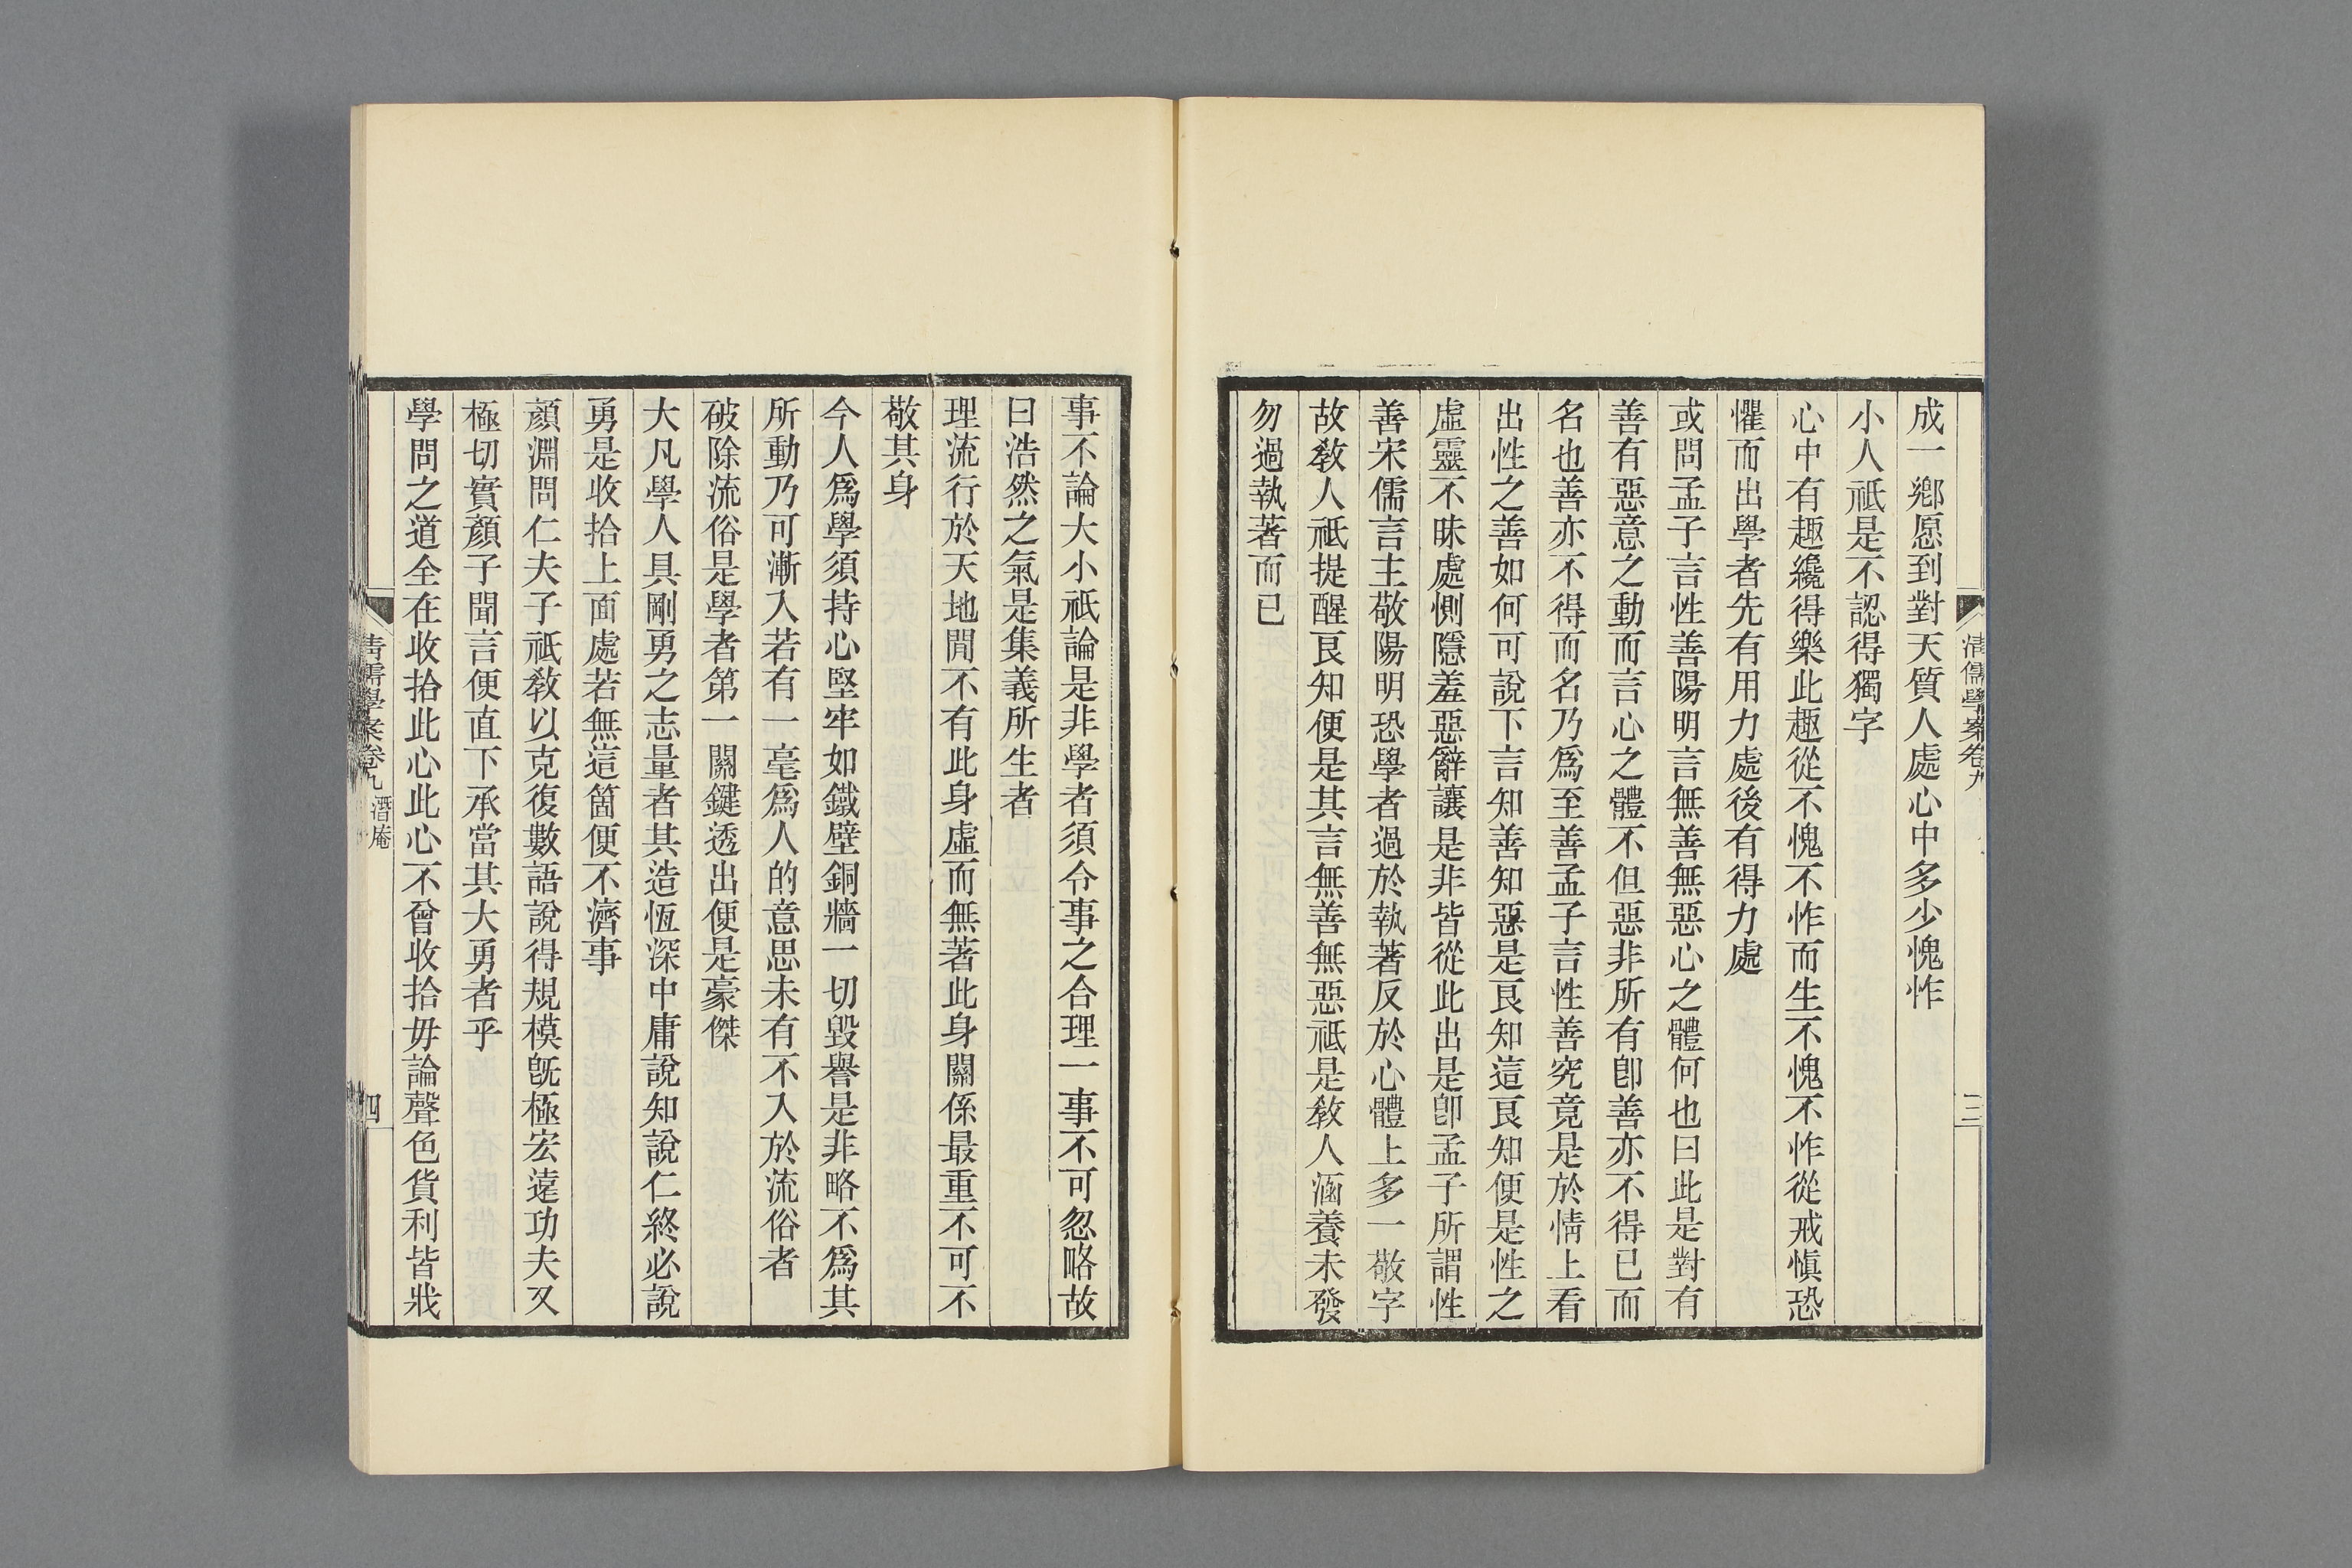 清儒學案卷九
三
成一鄕愿到對天質人處心中多少愧怍
小人祗是不認得獨字
心中有趣纔得樂此趣從不愧不怍而生不愧不怍從戒愼恐
懼而出學者先有用力處後有得力處
或問孟子言性善陽明言無善無惡心之體何也曰此是對有
善有惡意之動而言心之體不但惡非所有卽善亦不得已而
名也善亦不得而名乃爲至善孟子言性善究竟是於情上看
出性之善如何可說下言知善知惡是良知這良知便是性之
虛靈不昧處惻隱羞惡辭讓是非皆從此出是卽孟子所謂性
善宋儒言主敬陽明恐學者過於執著反於心體上多一敬字
故敎人祗提醒良知便是其言無善無惡祗是敎人涵養未發
勿過執著而已
事不論大小祗論是非學者須令事之合理一事不可忽略故
曰浩然之氣是集義所生者
理流行於天地閒不有此身虛而無著此身關係最重不可不
敬其身
今人爲學須持心堅牢如鐵壁銅牆一切毀譽是非略不爲其
所動乃可漸入若有一毫爲人的意思未有不入於流俗者
破除流俗是學者第一關鍵透出便是豪傑
大凡學人具剛勇之志量者其造恆深中庸說知說仁終必說
勇是收拾上面處若無這箇便不濟事
顏淵問仁夫子祗敎以克復數語說得規模旣極宏遠功夫又
極切實顏子聞言便直下承當其大勇者乎
學問之道全在收拾此心此心不曾收拾毋論聲色貨利皆戕
清儒學案卷九 潛庵
四